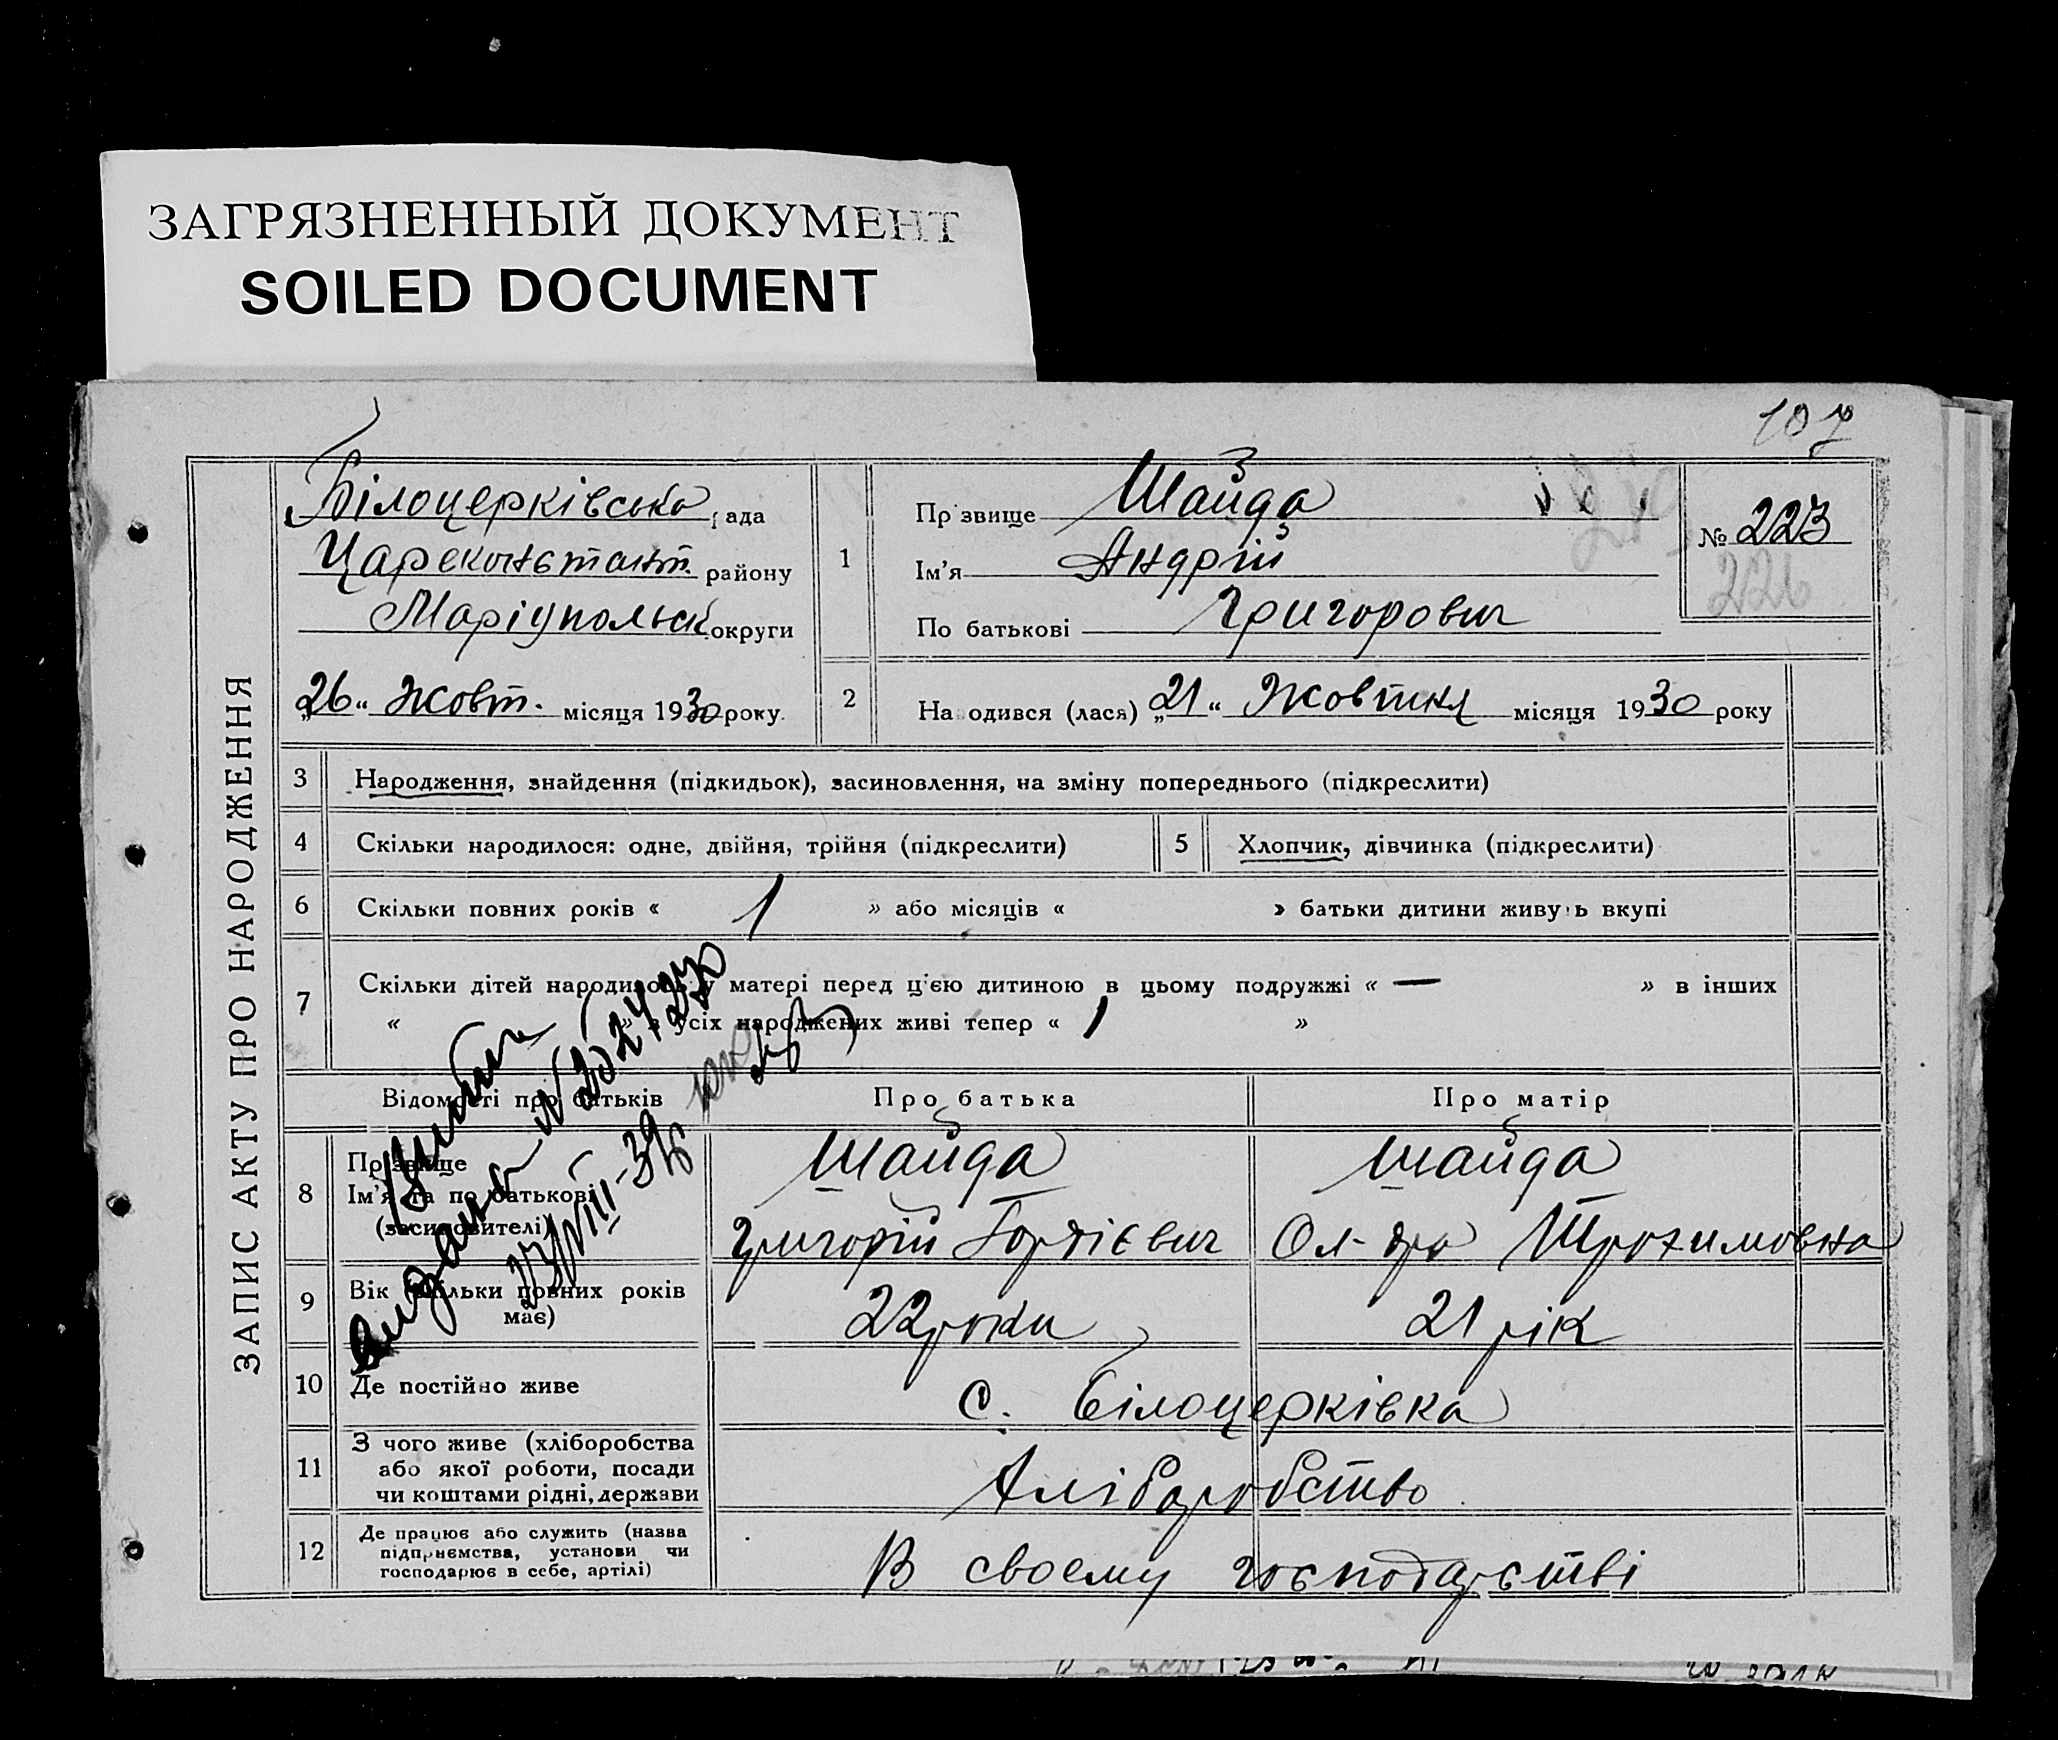 ЗАГРЯЗНЕННЫЙ ДОКУМЕНТ
SOILED DOCUMENT
107
ЗАПИС АКТУ ПРО НАРОДЖЕННЯ
Білоцерківська рада
Цареконстант. району
Маріупольськ округи
„26“ Жовт. місяця 1930 року.
1
Прізвище Шайда
Ім’я Андрій
По батькові Григорович
№ 223
226
2 Народився (лася) „21“ Жовтня місяця 1930 року
3 Народження, знайдення (підкидьок), засиновлення, на зміну попереднього (підкреслити)
4 Скільки народилося: одне, двійня, трійня (підкреслити) 5 Хлопчик, дівчинка (підкреслити)
6 Скільки повних років « 1 » або місяців « » батьки дитини живуть вкупі
7 Скільки дітей народилось у матері перед ц’єю дитиною в цьому подружжі « — » в інших
« » з усіх народжених живі тепер « 1 »
Відомості про батьків Про батька Про матір
8 Прізвище
Ім’я та по батькові
(засиновителі)
Шайда
Григорій Гордієвич
Шайда
Ол-дра Трохимовна
9 Вік (скільки повних років
має)
22 роки
21 рік
10 Де постійно живе с. Білоцерківка
11 З чого живе (хліборобства
або якої роботи, посади
чи коштами рідні, держави
Хліборобство
12 Де працює або служить (назва
підприємства, установи чи
господарює в себе, артілі)
В своему господарстві
видано